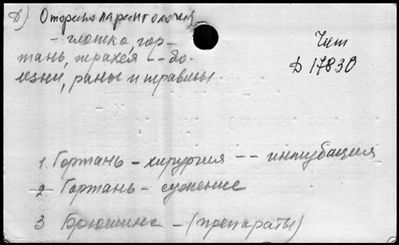 D) Оторинолярингология
- глотка, гор-
тань, трахея - - бо-
лезни, раны и травмы.
Чит
D 17830
1. Гортань - хирургия - - интубация
2 - Гортань - сужение
3 Брюшина - (препараты)